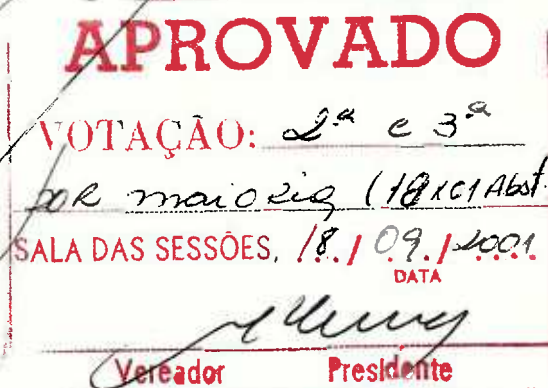 APROVADO
VOTAÇÃO: 2ª e 3ª
por maioria (18x01 Abst.
SALA DAS SESSÕES, 18 / 09 / 2001
DATA
Vereador Presidente